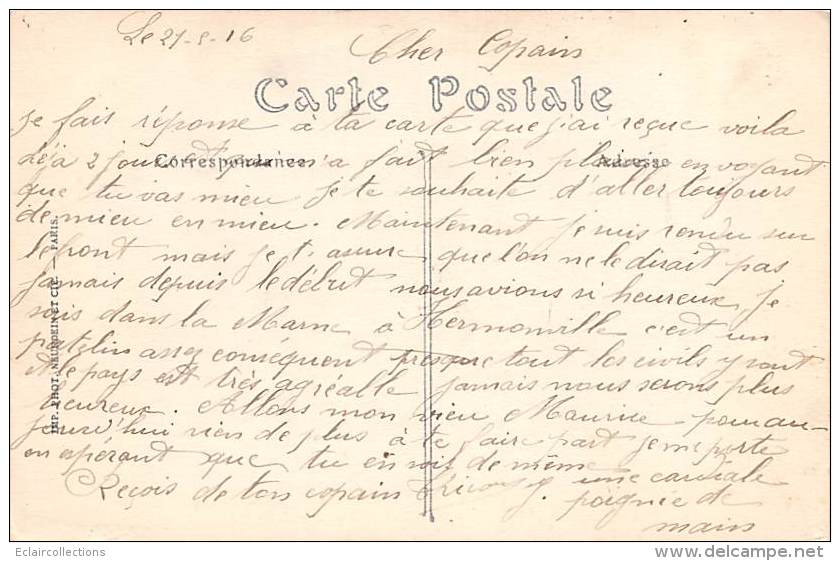 Le 21-5-16
Cher Copain
Carte Postale
Je fais réponse à ta carte que j'ai reçue voila
déja 2 jours et m'a fait bien plaisir en voyant
Correspondance Adresse
que tu vas mieu je te souhaite d'aller toujours
de mieu en mieu. Maintenant je suis rendu sur
le front mais je t'assure que l'on ne le dirait pas
jamais depuis le début nous avions si heureux, je
suis dans la Marne à Hermonville c'est un
patelin assez conséquent presque tout les civils y sont
et le pays est très agréable jamais nous serons plus
heureux. Allons mon vieu Maurice pour au-
jourd'hui rien de plus à te faire part je me porte
en espérant que tu en soit de même
Reçois de ton copain une cordiale
poignée de
mains
IMP. PHOT. NEURDEIN ET CIE. — PARIS.
Eclaircollections
delcampe.net